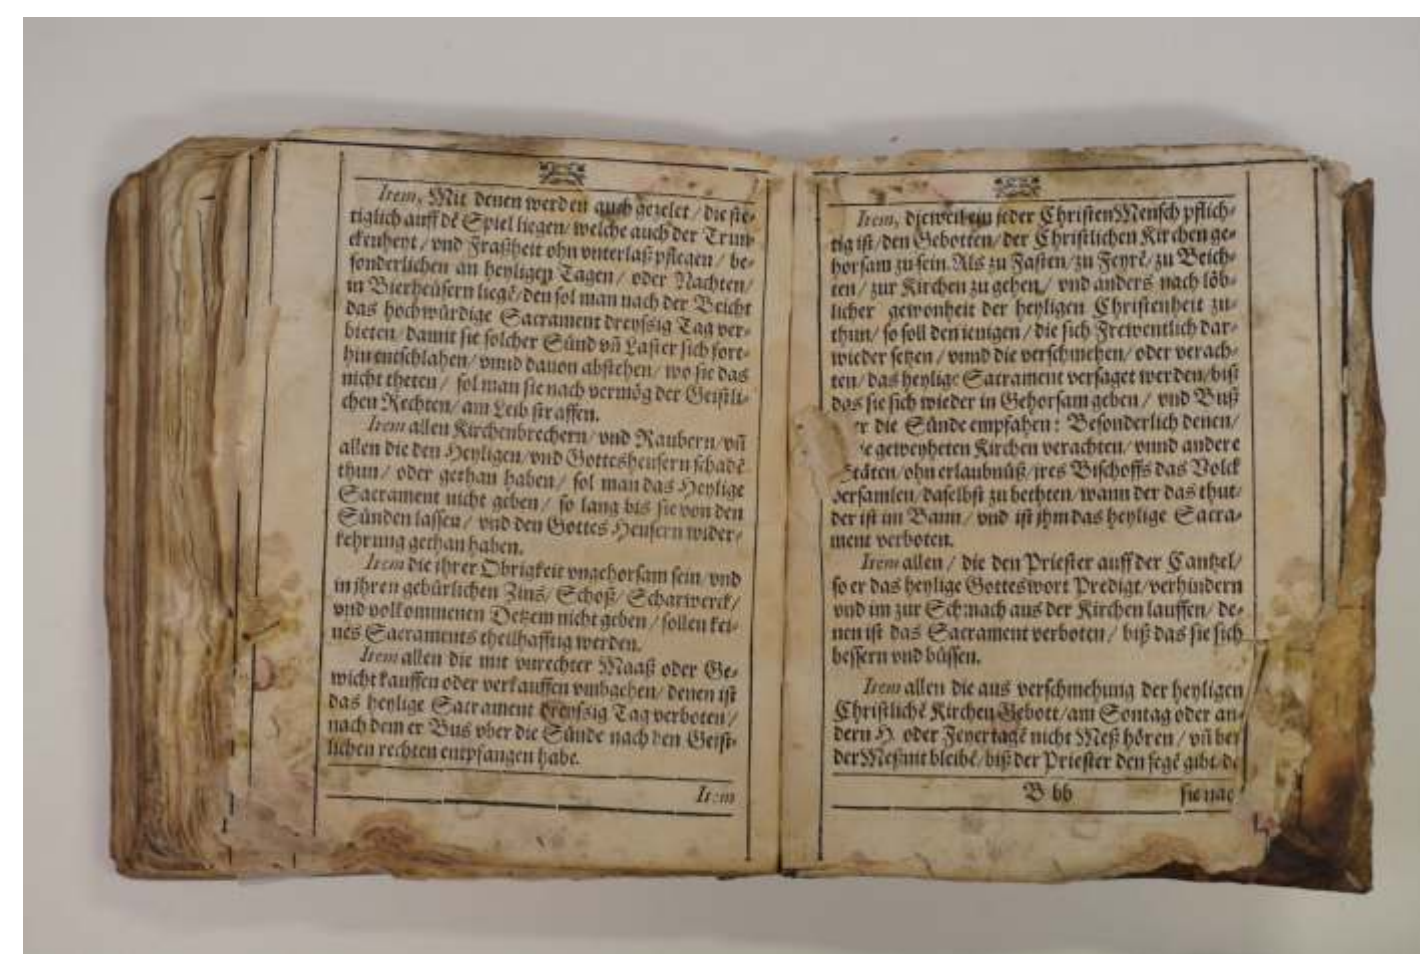 Item, Mit denen werden auch gezelet / die ste-
tiglich auff dẽ Spiel liegen / welche auch der Trun-
ckenheyt / vnd Fraßheit ohn vnterlaß pflegen / be-
sonderlichen an heyligen Tagen / oder Nachten /
in Bierheüsern liegẽ / den sol man nach der Beicht
das hochwürdige Sacrament dreyssig Tag ver-
bieten / damit sie solcher Sünd vñ Laster sich fort-
hin entschlahen / vnnd dauon abstehen / wo sie das
nicht theten / sol man sie nach vermög der Geistli-
chen Rechten / am Leib straffen.
Item allen Kirchenbrechern / vnd Raubern / vñ
allen die den Heyligen / vnd Gottesheusern schadẽ
thun / oder gethan haben / sol man das Heylige
Sacrament nicht geben / so lang bis sie von den
Sünden lassen / vnd den Gottes Heusern wider-
kehrung gethan haben.
Item die ihrer Obrigkeit vngehorsam sein / vnd
in ihren gebürlichen Zins / Schoß / Scharwerck /
vnd volkommenen Detzem nicht geben / sollen kei-
nes Sacraments theilhafftig werden.
Item allen die mit vnrechter Maaß oder Ge-
wicht kauffen oder verkauffen vmbgehen / denen ist
das heylige Sacrament dreyssig Tag verboten /
nach dem er Bus vber die Sünde nach den Geist-
lichen rechten entpfangen habe.
Item
Item, dieweil ein jeder Christen Mensch pflich-
tig ist / den Gebotten / der Christlichen Kirchen ge-
horsam zu sein. Als zu Fasten / zu Feyrẽ / zu Beich-
ten / zur Kirchen zu gehen / vnd anders nach löb-
licher gewonheit der heyligen Christenheit zu-
thun / so soll den ienigen / die sich Frewentlich dar-
wieder setzen / vnnd die verschmehen / oder verach-
ten / das heylige Sacrament versaget werden / biß
das sie sich wieder in Gehorsam geben / vnd Buß
die Sünde empfahen : Besonderlich denen /
geweyheten Kirchen verachten / vnnd andere
Stäten / ohn erlaubnüß / ires Bischoffs das Volck
versamlen / daselbst zu bethten / wann der das thut /
der ist im Bann / vnd ist jhm das heylige Sacra-
ment verboten.
Item allen / die den Priester auff der Cantzel /
so er das heylige Gotteswort Predigt / verhindern
vnd im zur Schmach aus der Kirchen lauffen / de-
nen ist das Sacrament verboten / biß das sie sich
bessern vnd büssen.
Item allen die aus verschmehung der heyligen
Christlichẽ Kirchen Gebott / am Sontag oder an-
dern H. oder Feyertagẽ nicht Meß hören / vñ bey
der Meß nit bleibẽ / biß der Priester den segẽ gibt / de
B bb sie nac